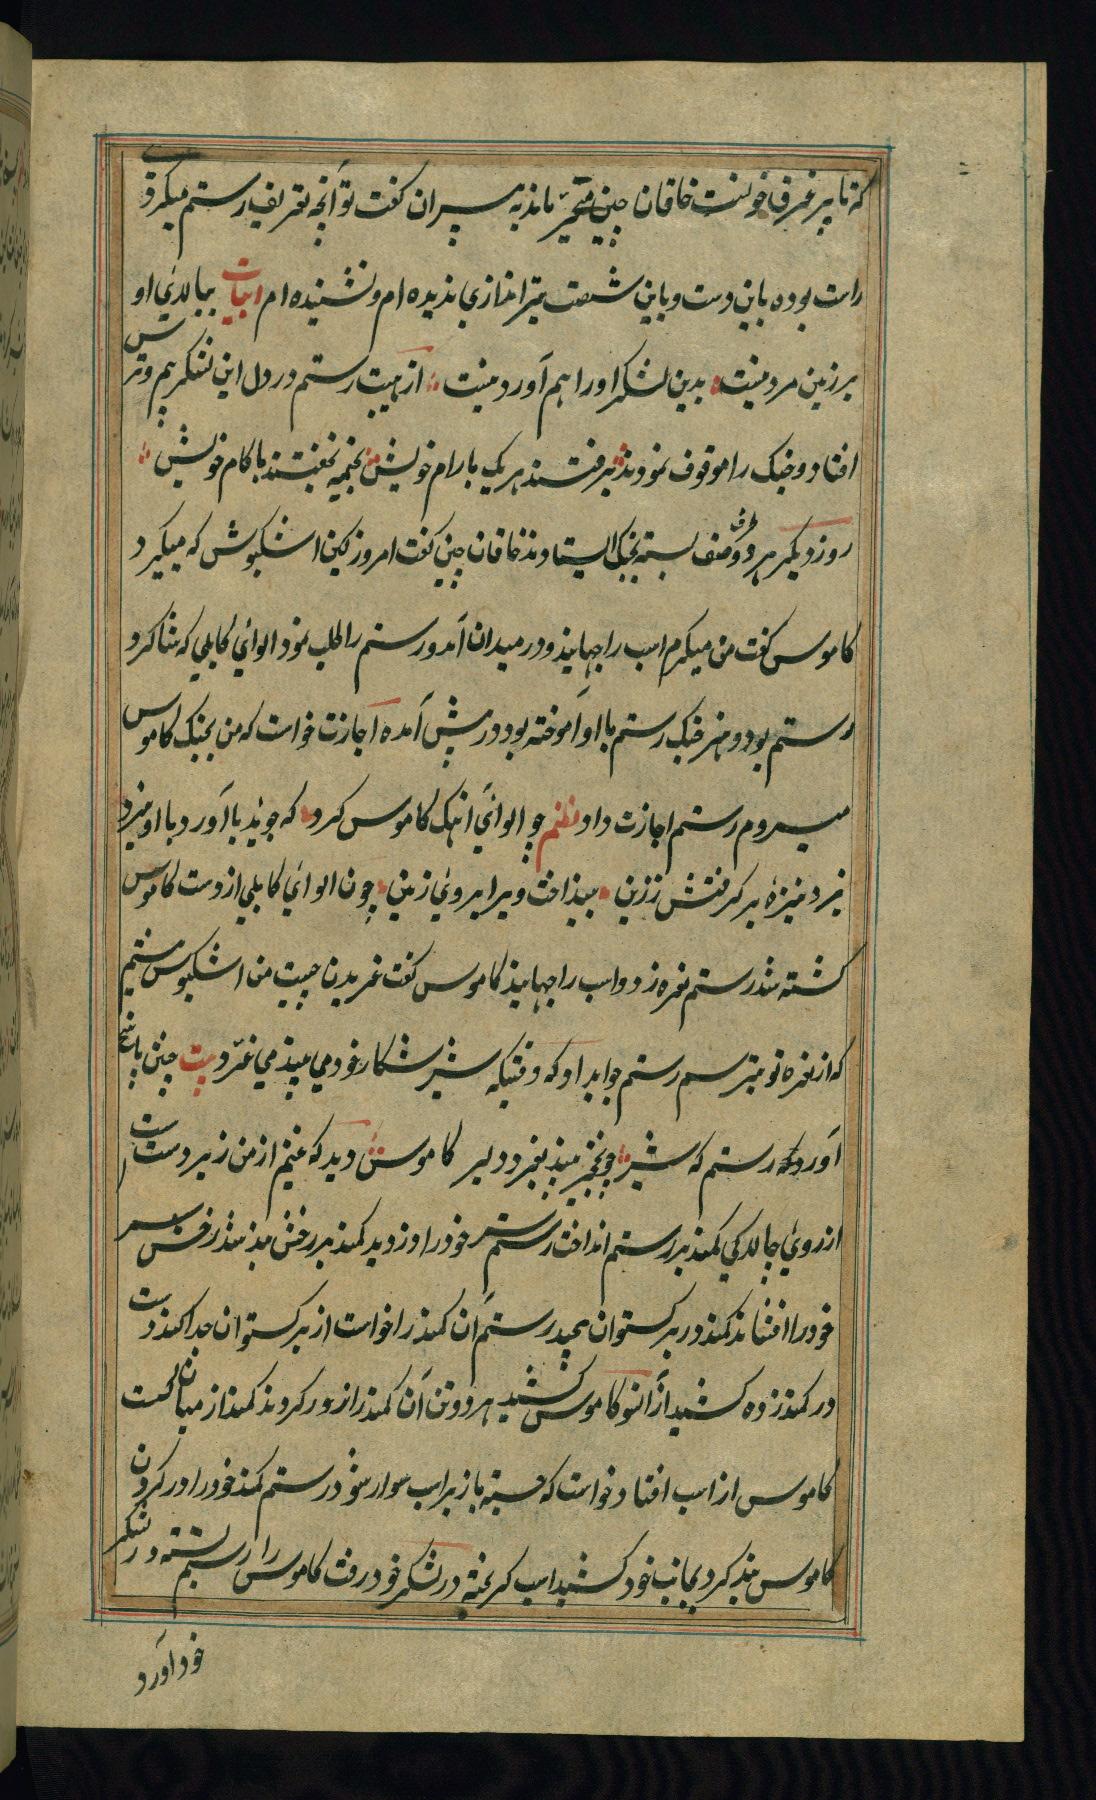 که تا پر غرق خونست خاقان چین متحیر ماند به پیران کفت تو آنچه تعریف رستم میکردی
راست بوده باین دست و باین شصت تیراندازی ندیده ام و نشنیده ام ابیات ببالای او
بر زمین مرد نیست بدین لشکر او را هم آورد نیست از هیبت رستم در دل این لشکر بیم و ترس
افتاد و جنک را موقوف نمودند برفتند هر یک بارام خویش بخیمه نخفتند با کام خویش
روز دیکر هر دو طرف صف بسته بجنک ایستادند خاقان چین کفت امروز کین اشکبوش که میکیرد
کاموس کفت من میکرم اسب را جهانید و در میدان آمد و رستم را طلب نمود الوای کابلی که شاکرد
رستم بود و هنر جنک رستم با او آموخته بود در پیش آمده اجازت خواست که من بجنک کاموس
میروم رستم اجازت داد نظم چو الوای آهنک کاموس کرد که جوید با آورد با او نبرد
بزد نیزه بر کرفتش ززین بینداخت ویرا بروی زمین چون الوای کابلی از دست کاموس
کشته شد رستم نعره زد و اسب را جهانید کاموس کفت غریدن چیست من اشکبوس نیستم
که از نعره تو بترسم رستم جواب داد که وقتیکه شیر شکار خود می بیند می غرد بیت چنین پاسخ
آورد رستم که شیر چو نخچیر بیند بغرد دلیر کاموس دید که غنیم از من زبردست است
از روی چالاکی کمند بر رستم انداخت رستم سر خود را دزدید کمند بر رخش بند شد رخش سر
خود را افشاند کمند در برکستوان پیچید رستم آن کمند را خواست از برکستوان جدا کند دست
در کمند زده کشید از آنسو کاموس کشید هر دو تن آن کمند را زور کردند کمند از میان کست
کاموس از اسب افتاد خواست که جسته باز بر اسب سوار شود رستم کمند خود را در کردن
کاموس بند کرد بجانب خود کشید اسب کریخته در لشکر خود رفت کاموس را رستم بسته در لشکر
خود آورد